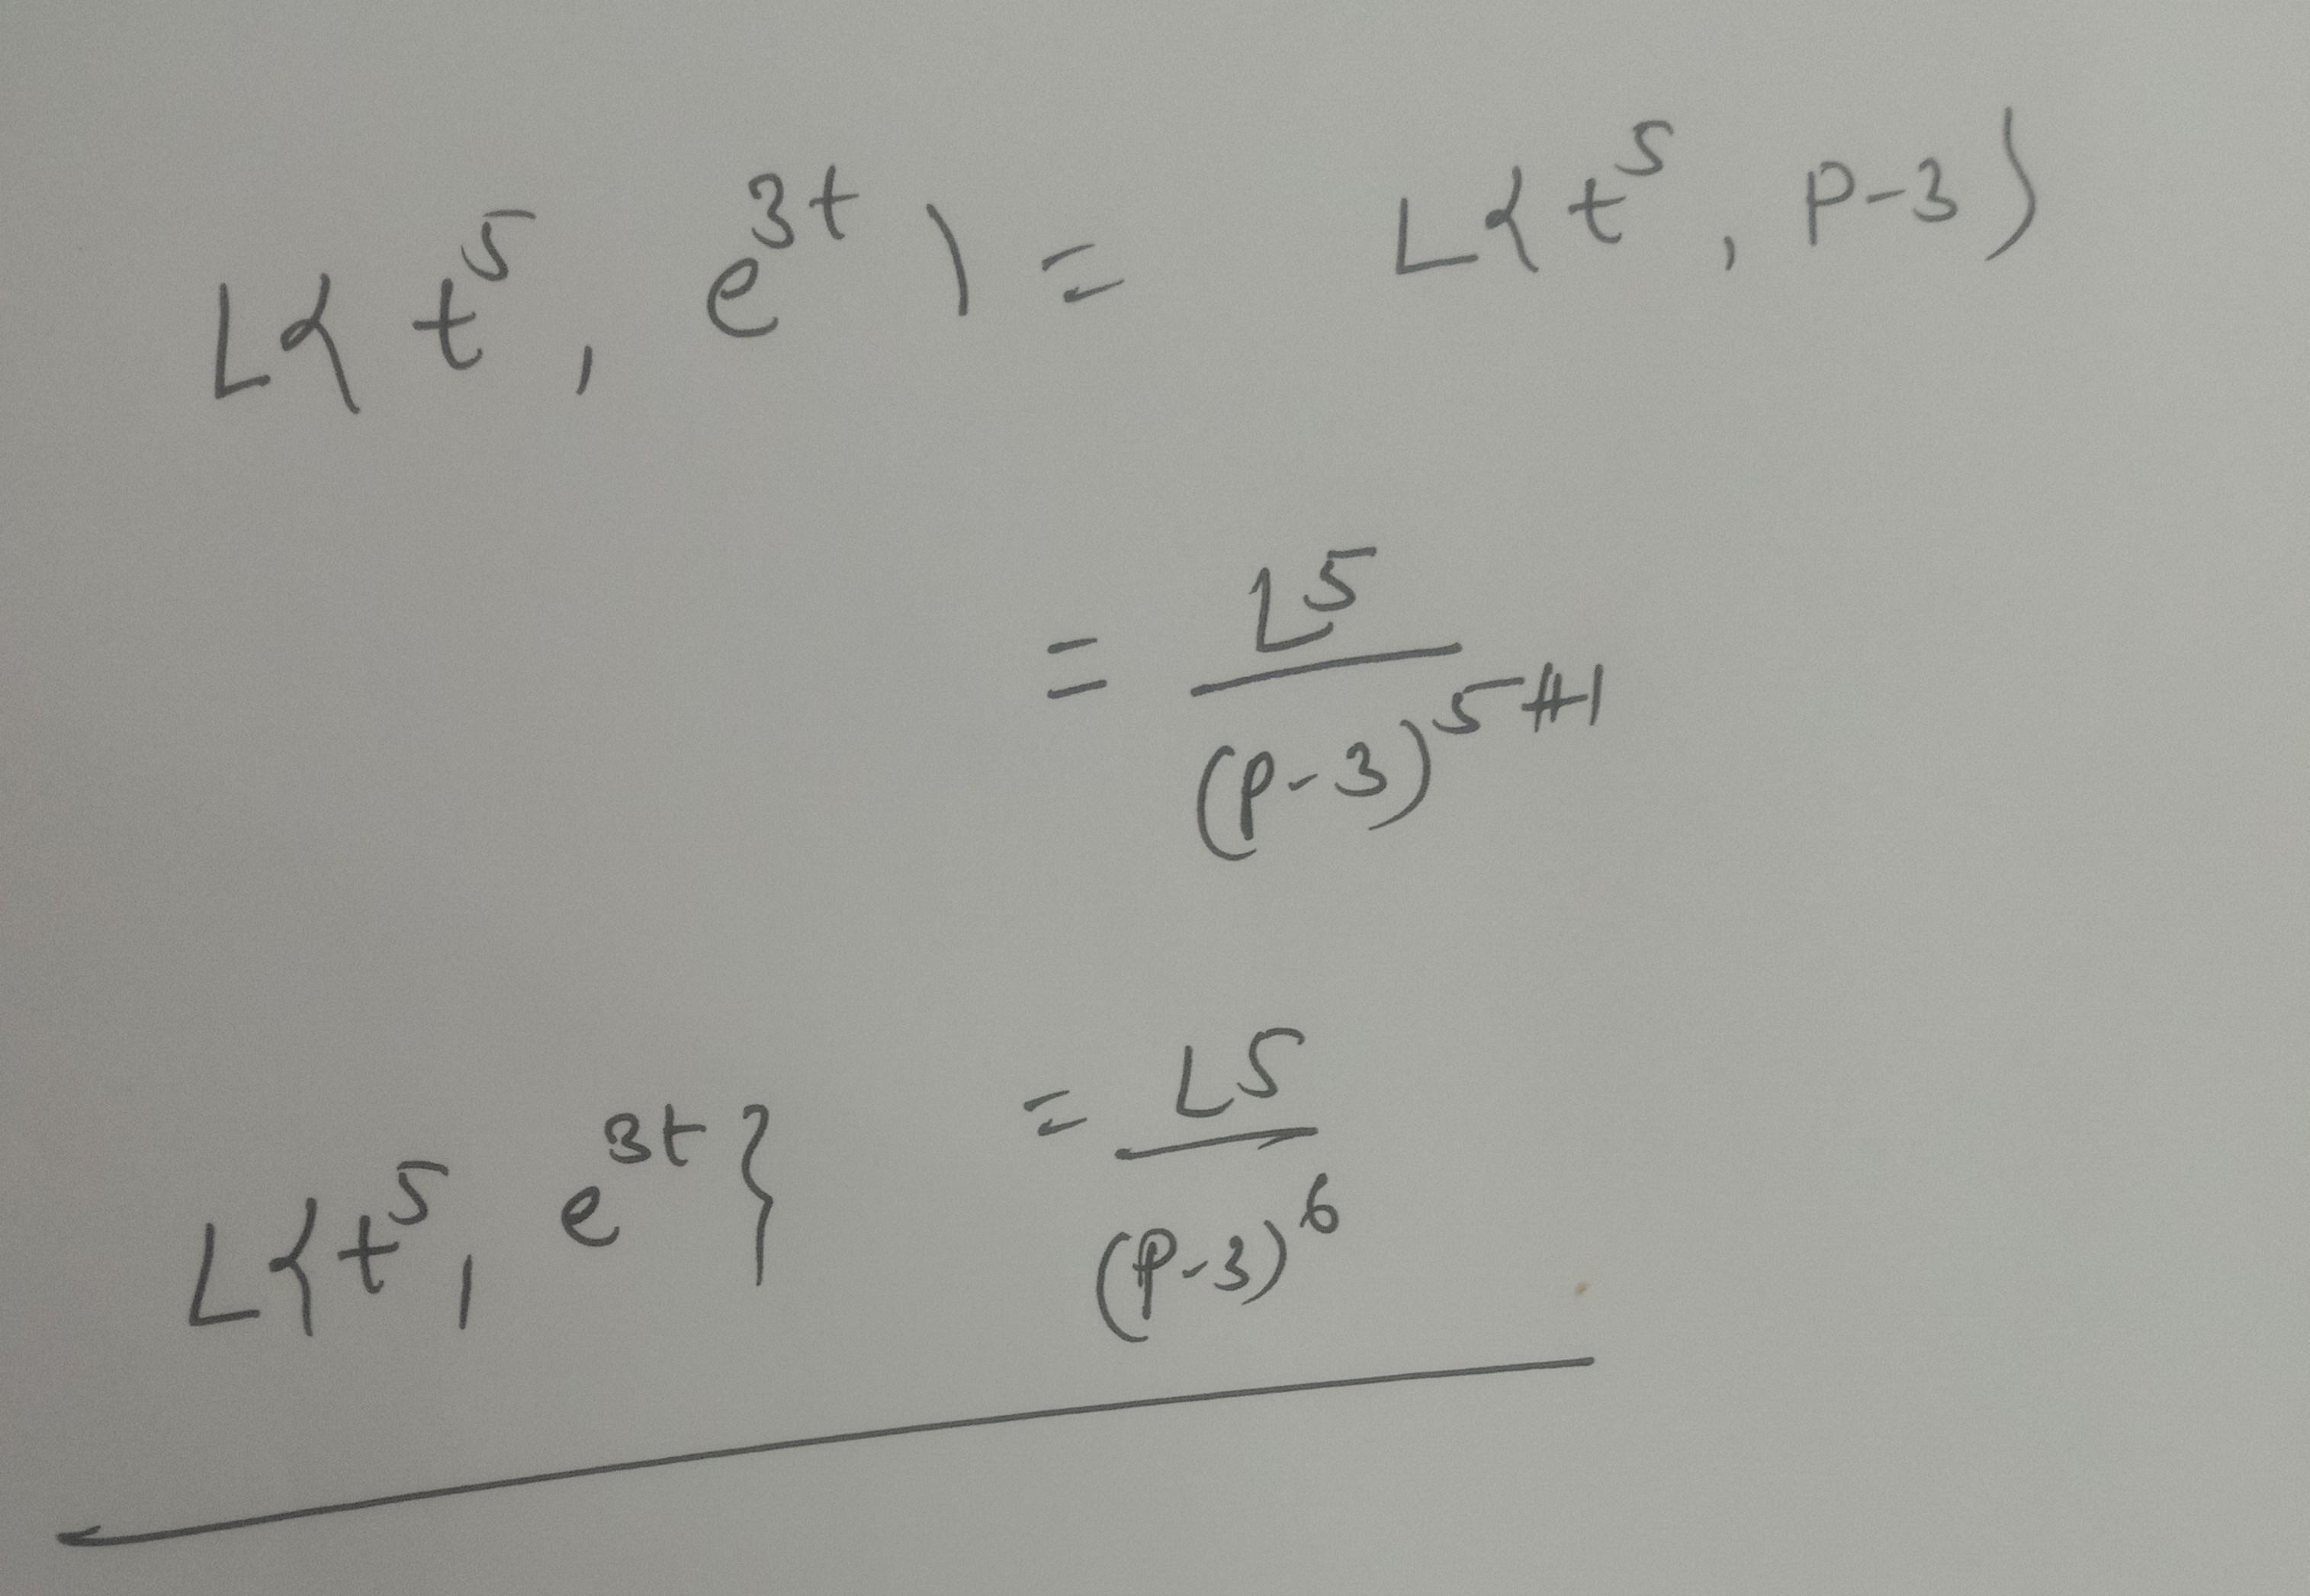 L{ t⁵, e³ᵗ ) = L{ t⁵, p-3 )
= L5 / (p-3)⁵⁺¹
L{ t⁵, e³ᵗ } = L5 / (p-3)⁶